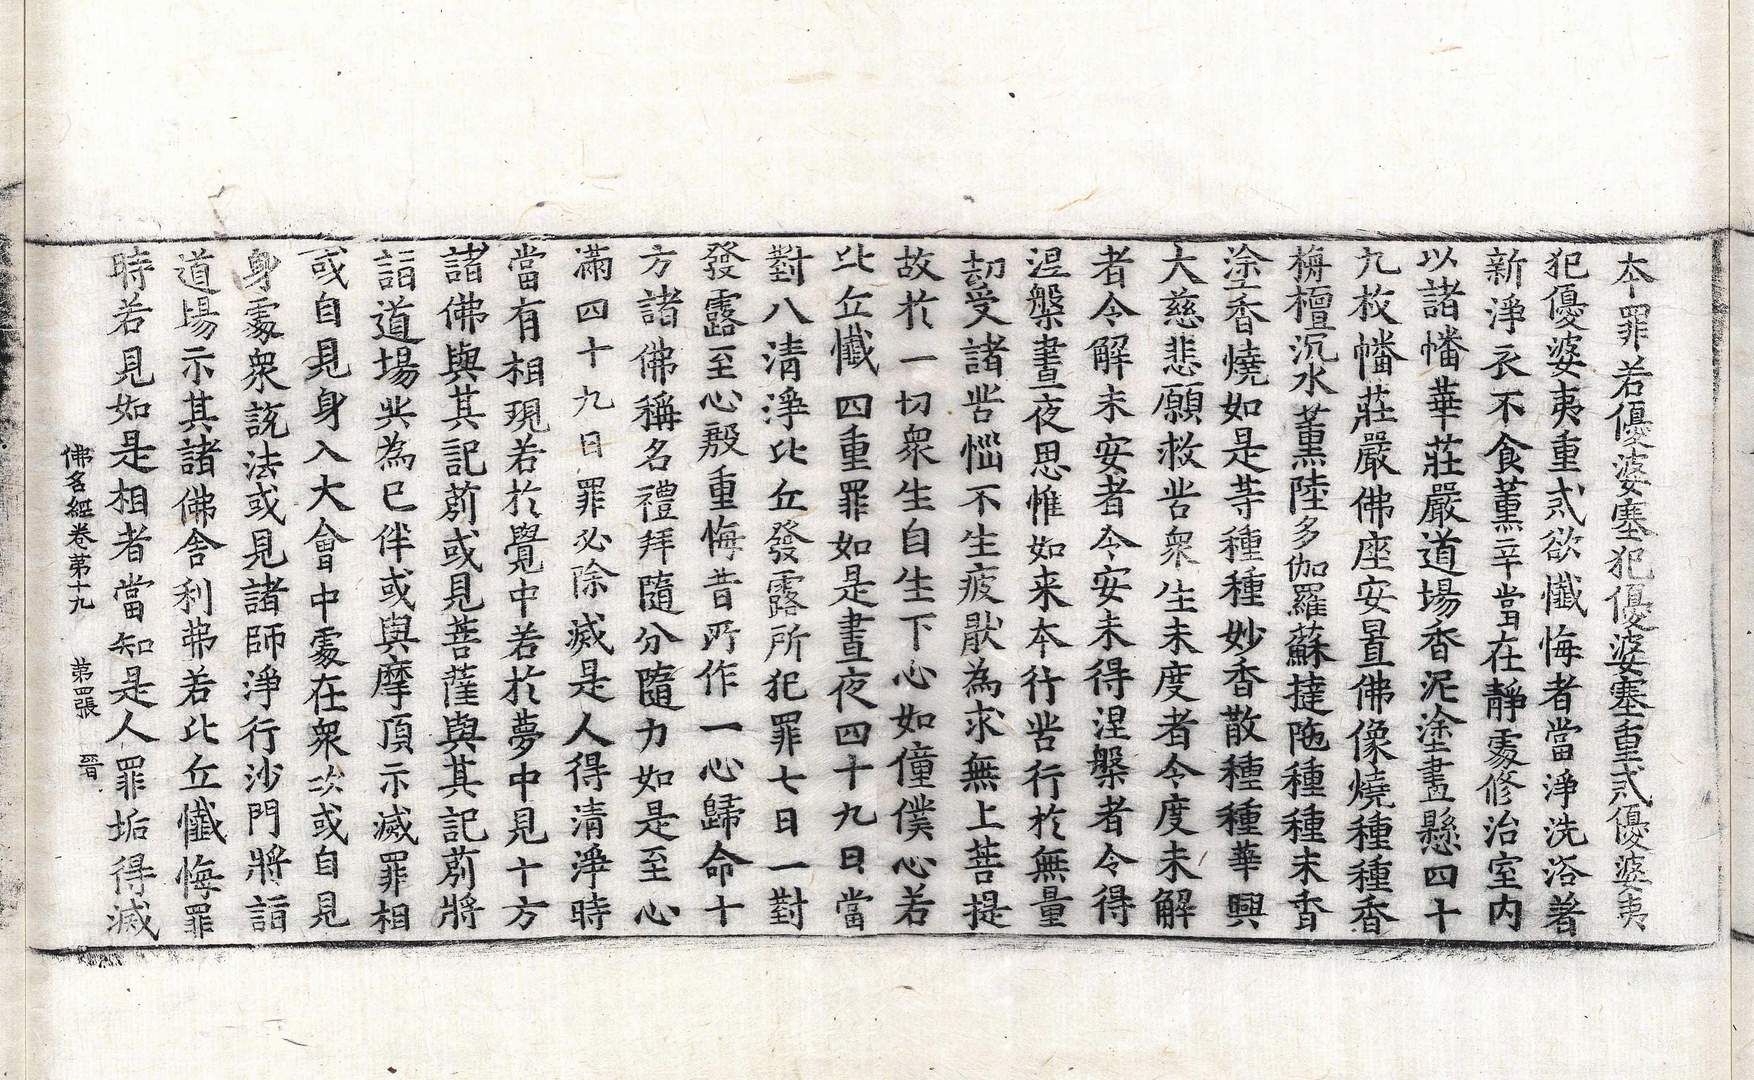 本罪若優婆塞犯優婆塞重貳優婆夷
犯優婆夷重貳欲懺悔者當淨洗浴著
新淨衣不食薰辛當在靜處修治室內
以諸幡華莊嚴道場香泥塗畫懸四十
九枚幡莊嚴佛座安置佛像燒種種香
栴檀沉水薰陸多伽羅蘇揵陁種種末香
塗香燒如是等種種妙香散種種華興
大慈悲願救苦衆生未度者令度未解
者令解未安者令安未得涅槃者令得
涅槃晝夜思惟如来本行苦行於無量
劫受諸苦惱不生疲猒為求無上菩提
故於一切衆生自生下心如僮僕心若
比丘懺四重罪如是晝夜四十九日當
對八清淨比丘發露所犯罪七日一對
發露至心殷重悔昔所作一心歸命十
方諸佛稱名禮拜隨分隨力如是至心
滿四十九日罪必除滅是人得清淨時
當有相現若於覺中若於夢中見十方
諸佛與其記莂或見菩薩與其記莂將
詣道場共為已伴或與摩頂示滅罪相
或自見身入大會中處在衆次或自見
身處衆說法或見諸師淨行沙門將詣
道場示其諸佛舍利弗若比丘懺悔罪
時若見如是相者當知是人罪垢得滅
佛名經卷第十九　第四張　晉